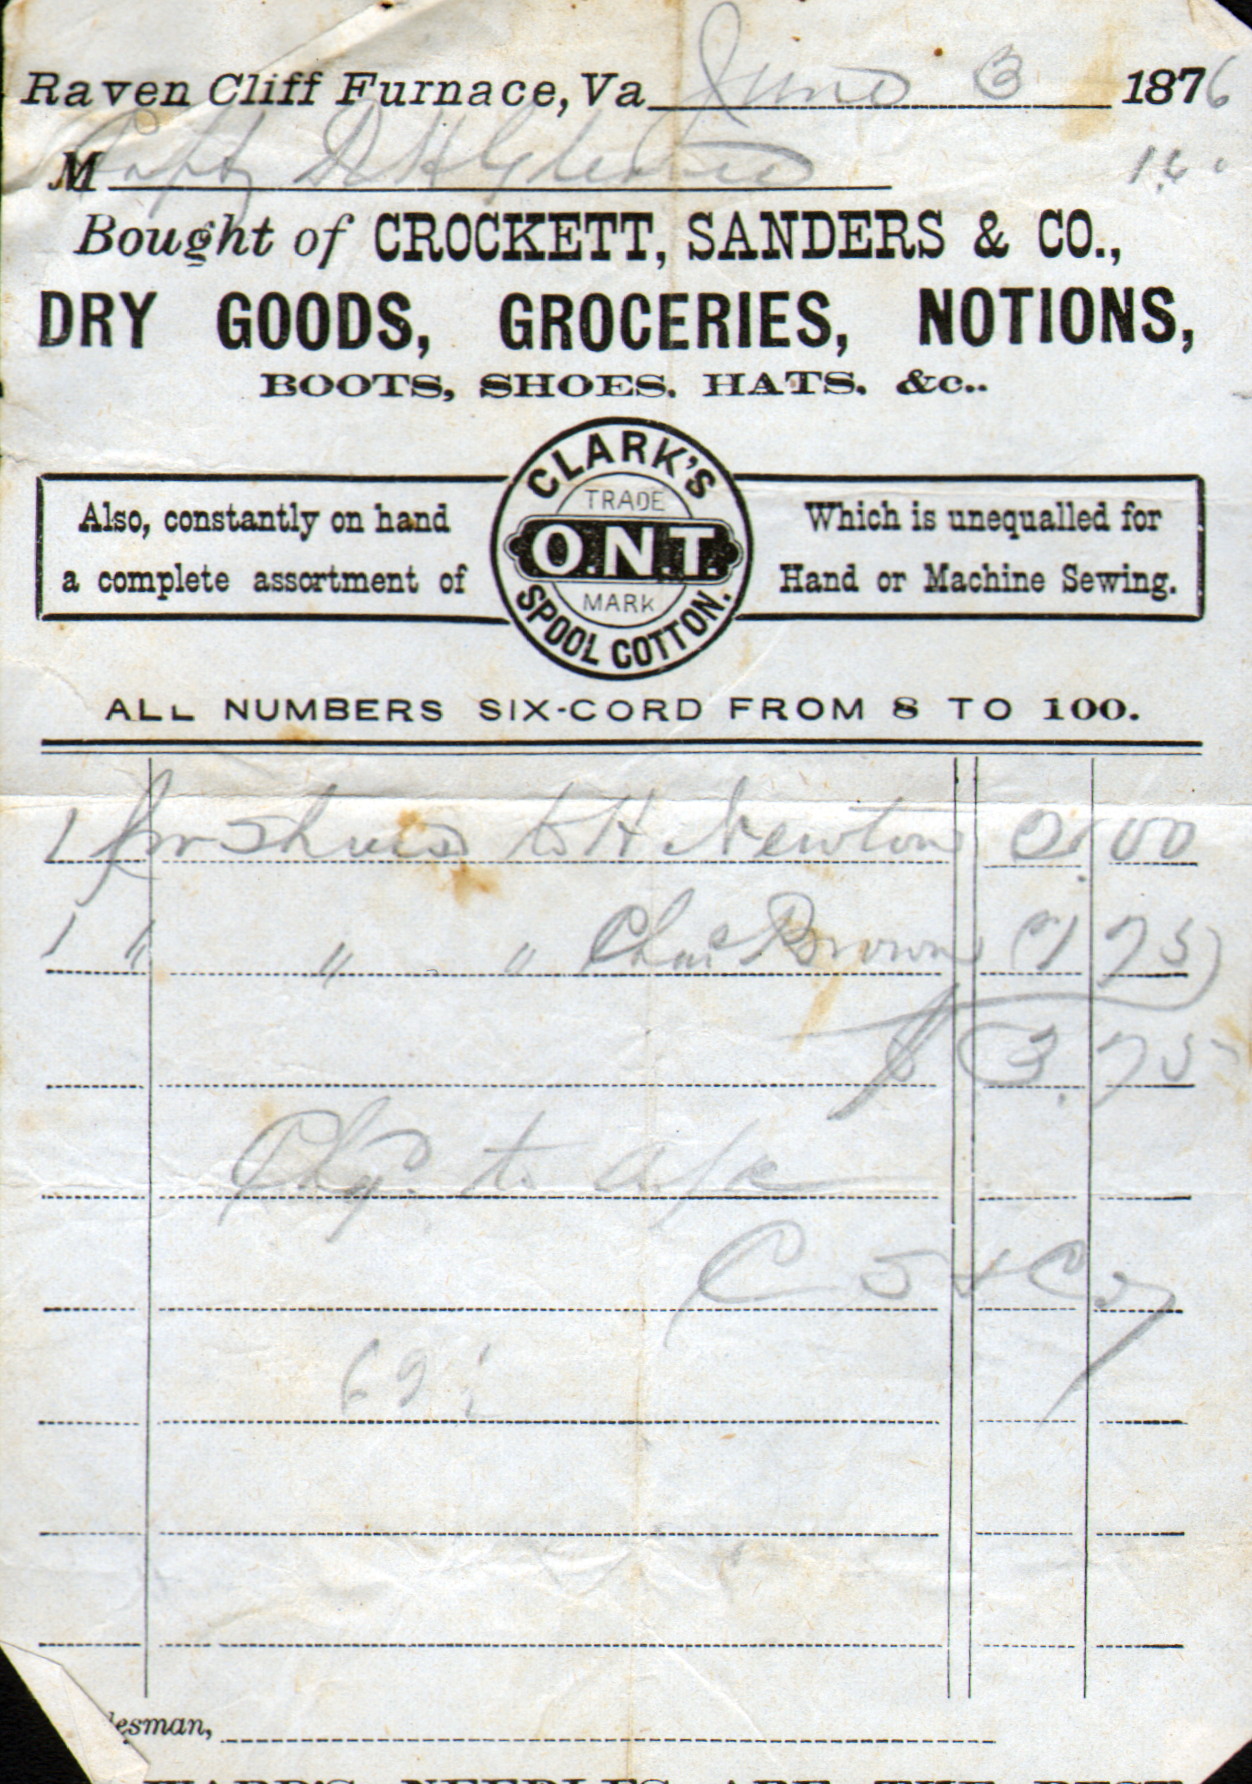 Raven Cliff Furnace, Va June 3 1876
M Capt D H
Bought of CROCKETT, SANDERS & CO.,
DRY GOODS, GROCERIES, NOTIONS,
BOOTS, SHOES. HATS. &c..
CLARK'S
TRADE
O.N.T.
MARK
SPOOL COTTON.
Also, constantly on hand
a complete assortment of
Which is unequalled for
Hand or Machine Sewing.
ALL NUMBERS SIX-CORD FROM 8 TO 100.
1 pr Shoes to H Newton 2.00
1 " " " Chas Brown 1 75
$ 3.75
Chg. to a/c
C S & Co
69
esman,
WARD'S NEEDLES ARE THE BEST